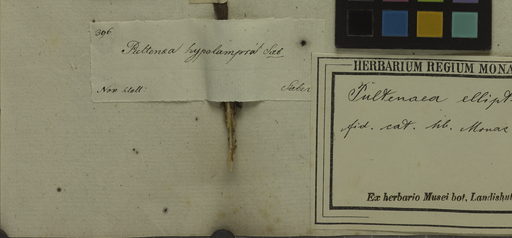 396.
Pultenea hypolampra Sieb
Nov. Holl:
Sieber
HERBARIUM REGIUM MONA
Pultenaea ellipt
fid. cat. hb. Monac
Ex herbario Musei bot. Landishut